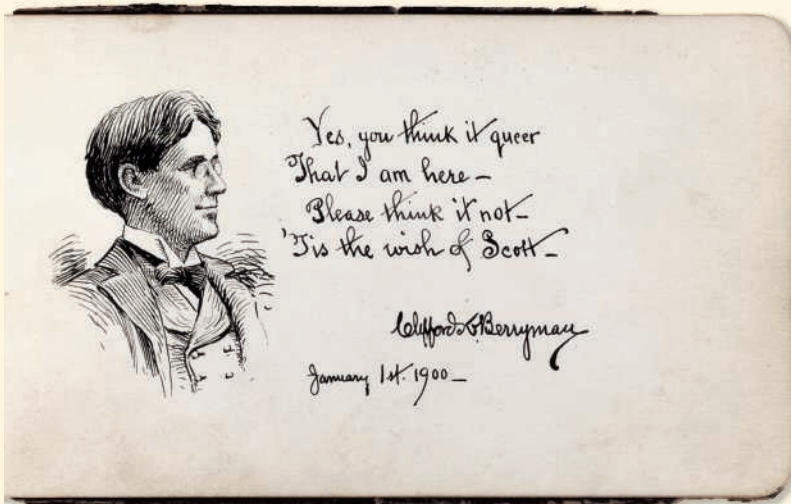 Yes, you think it queer
That I am here –
Please think it not –
'Tis the wish of Scott –
Clifford K. Berryman
January 1st. 1900 –